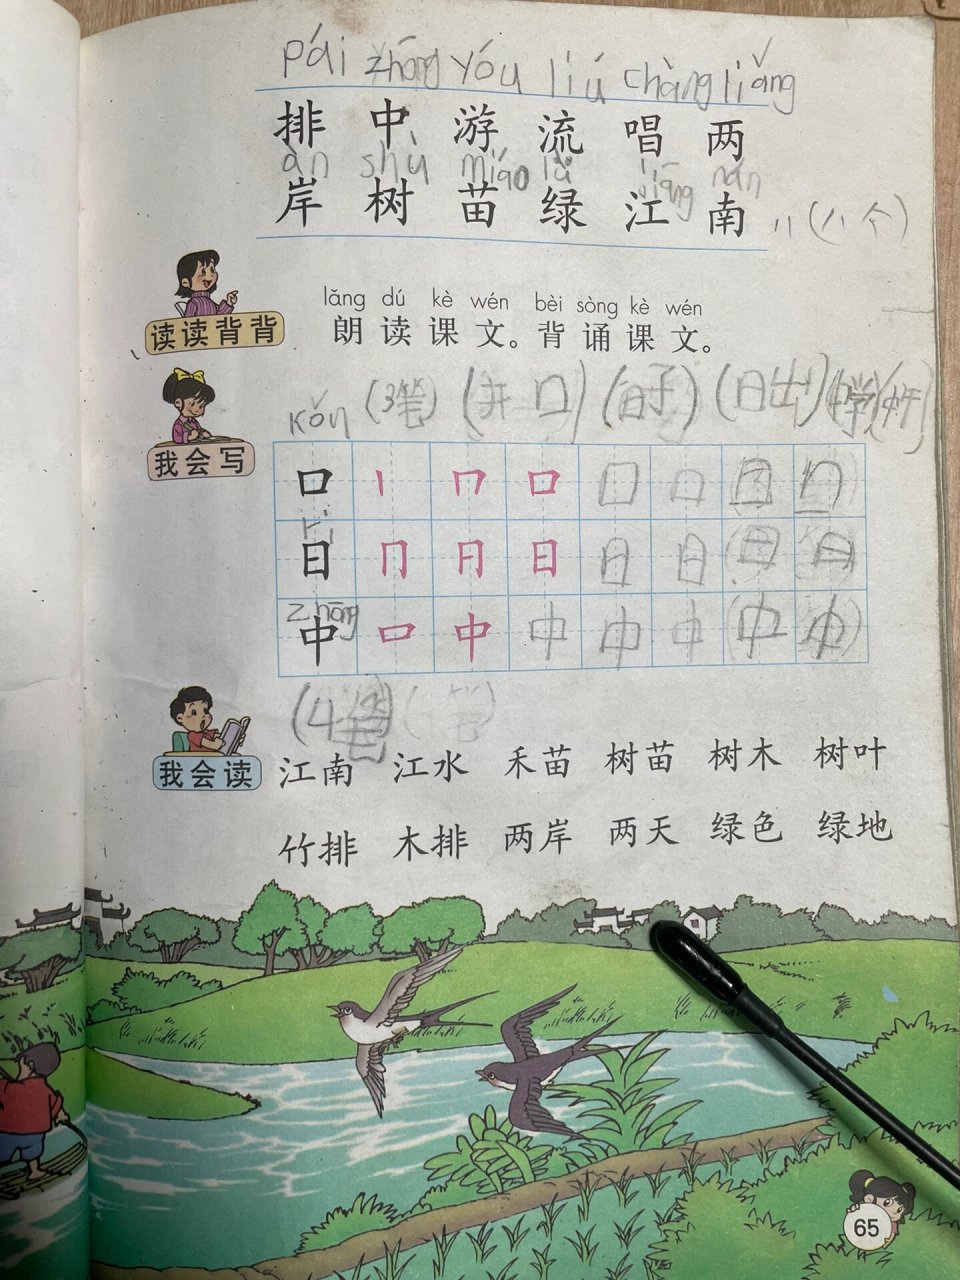 pái zhōng yóu liú chàng liǎng
排 中 游 流 唱 两
àn shù miáo lǜ jiāng nán
岸 树 苗 绿 江 南 八（八个）
读读背背
lǎng dú kè wén bèi sòng kè wén
朗读课文。背诵课文。
kǒu （3笔）（开口）（日子）（日出）
我会写
口 丨 口 口 口 口
rì
日 日 日 日 日
zhōng
中 口 中 中 中 中 中 中
（4笔）（笔）
我会读
江南 江水 禾苗 树苗 树木 树叶
竹排 木排 两岸 两天 绿色 绿地
65